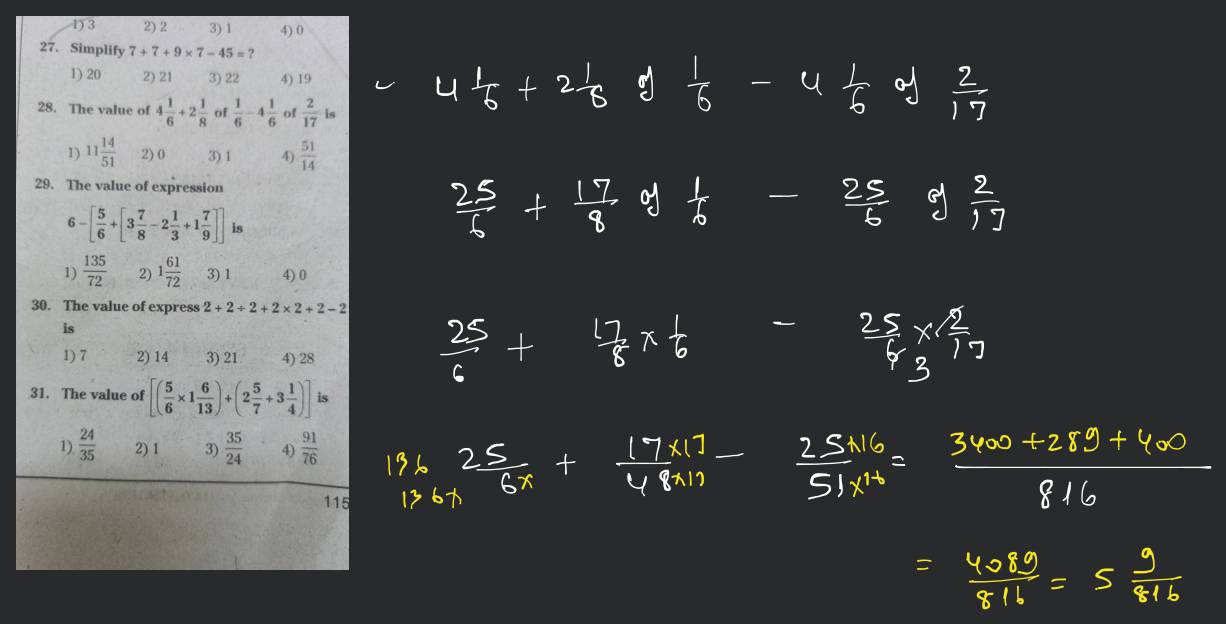 1) 3 2) 2 3) 1 4) 0
27. Simplify 7 + 7 + 9 × 7 – 45 = ?
1) 20 2) 21 3) 22 4) 19
28. The value of 4 1/6 + 2 1/8 of 1/6 - 4 1/6 of 2/17 is
1) 11 14/51 2) 0 3) 1 4) 51/14
29. The value of expression
6 – [5/6 + [3 7/8 – 2 1/3 + 1 7/9]] is
1) 135/72 2) 1 61/72 3) 1 4) 0
30. The value of express 2 + 2 ÷ 2 + 2 × 2 + 2 – 2
is
1) 7 2) 14 3) 21 4) 28
31. The value of [(5/6 × 1 6/13) + (2 5/7 + 3 1/4)] is
1) 24/35 2) 1 3) 35/24 4) 91/76
115
4 1/6 + 2 1/8 of 1/6 – 4 1/6 of 2/17
25/6 + 17/8 of 1/6 – 25/6 of 2/17
25/6 + 17/8 × 1/6 – 25/6 × 2/17
3
136 25 / 136× 6× + 17×17 / 48×17 – 25×16 / 51×16 = 3400 + 289 + 400 / 816
= 4089/816 = 5 9/816